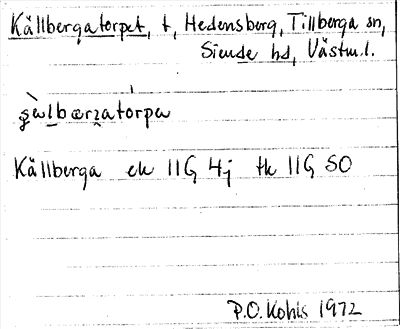 Källbergatorpet, t, Hedensberg, Tillberga sn,
Siende hd, Västm.l.
Källberga ek 11G 4j tk 11G SO
P.O. Kohls 1972